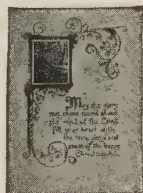 May the glory
that shone round about
the      of the Lord
fill your heart with
the          and
peace of the happy
Christmastide.